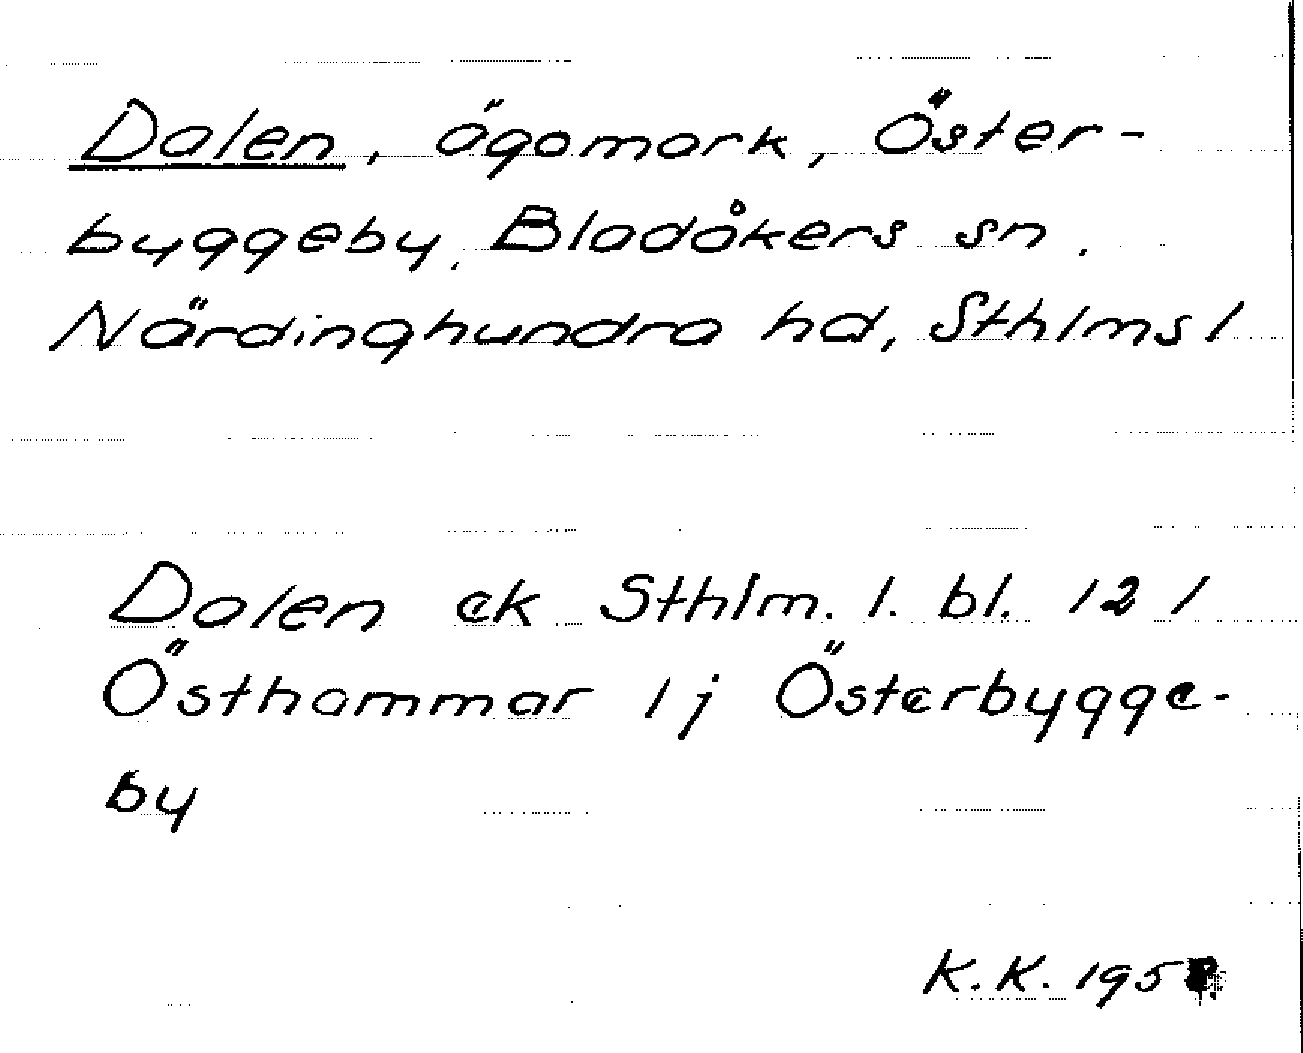 Dalen, ägomark, Öster-
byggeby, Bladåkers sn.
Närdinghundra hd, Sthlms l
Dalen ek Sthlm. l. bl. 121
Östhammar 1j Österbygge-
by
K.K.